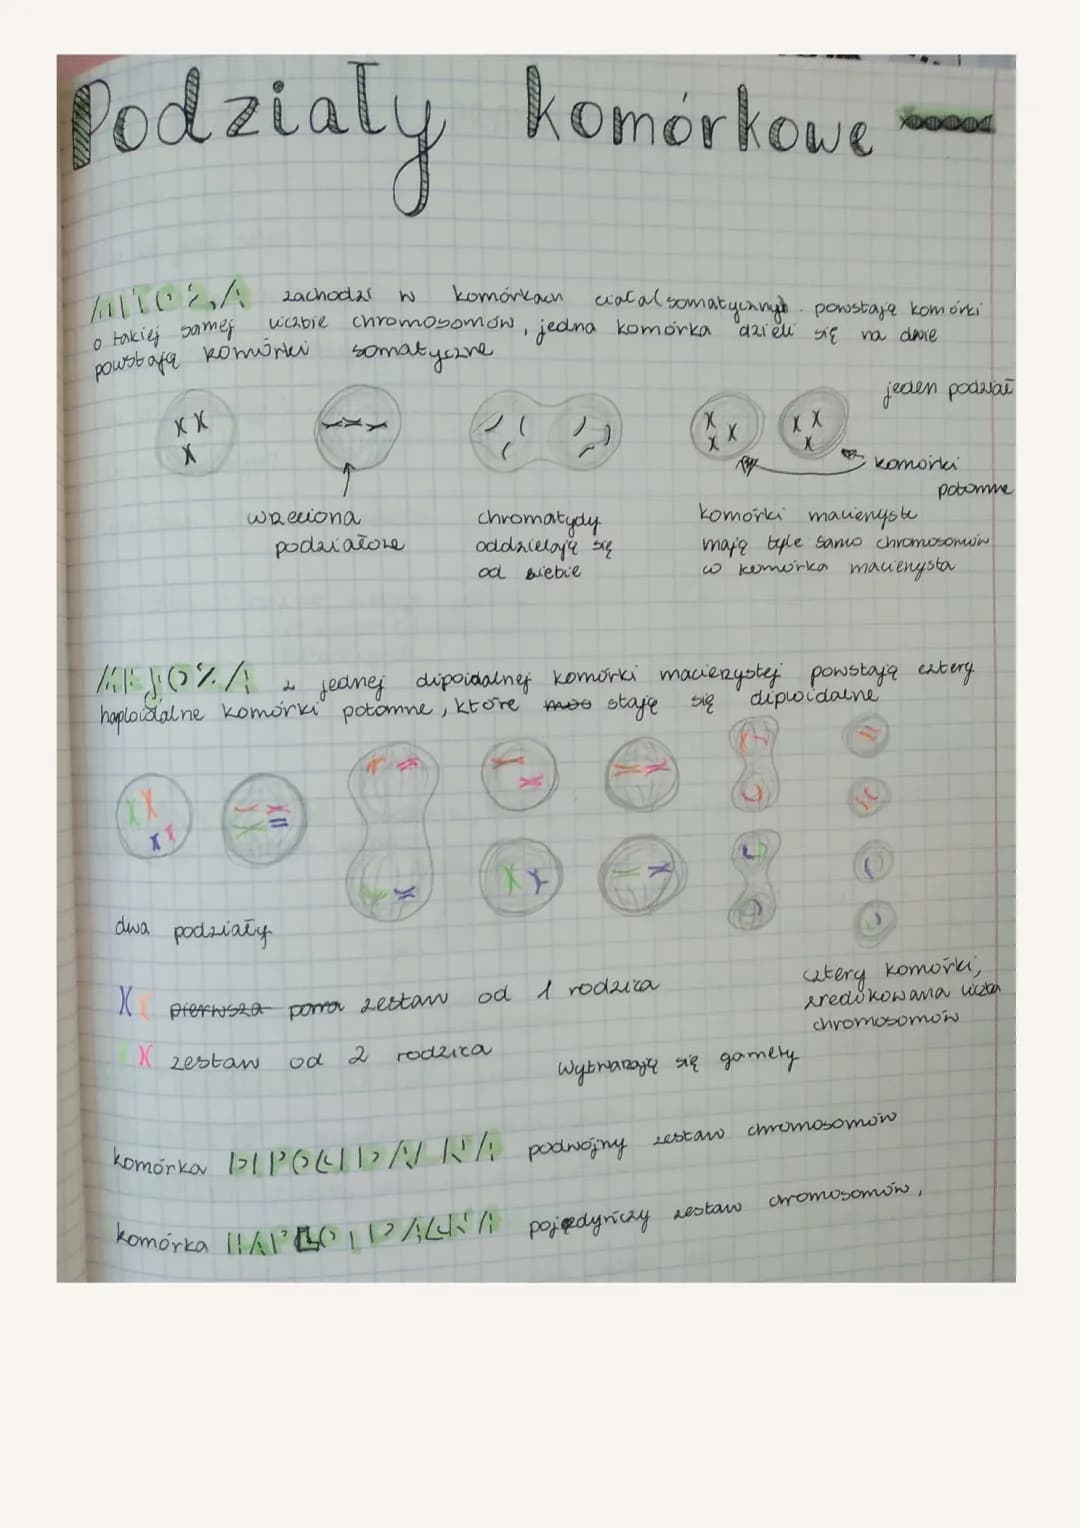 Podziały komórkowe
MITOZA zachodzi w komórkach ciała(somatycznych. powstają komórki
o takiej samej liczbie chromosomów, jedna komórka dzieli się na dwie
powstają komórki somatyczne
jeden podział
komórki
potomne
wrzeciona
podziałowe
chromatydy
oddzielają się
od siebie
komórki macierzyste
mają tyle samo chromosomów
co komórka macierzysta
MEJOZA z jednej dipoidalnej komórki macierzystej powstają cztery
haploidalne komórki potomne, które staję się diploidalne
dwa podziały
cztery komórki,
zredukowana liczba
chromosomów
pierwsza para zestaw od 1 rodzica
zestaw od 2 rodzica
Wytwarzają się gamety
komórka DIPOLIDALNA podwójny zestaw chromosomów
komórka HAPLOIDALNA pojedyńczy zestaw chromosomów,